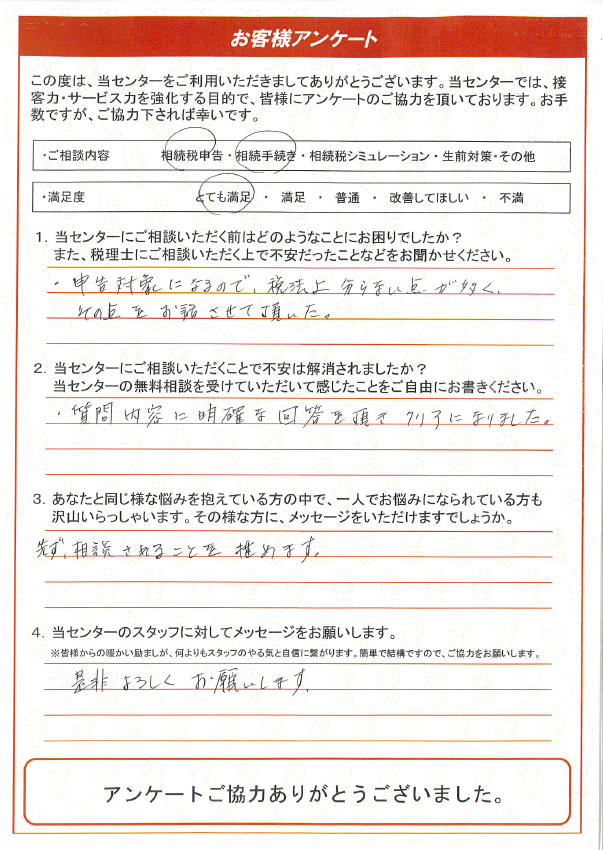 お客様アンケート
この度は、当センターをご利用いただきましてありがとうございます。当センターでは、接
客力・サービス力を強化する目的で、皆様にアンケートのご協力を頂いております。お手
数ですが、ご協力下されば幸いです。
・ご相談内容 相続税申告・相続手続き・相続税シミュレーション・生前対策・その他
・満足度 とても満足 ・ 満足 ・ 普通 ・ 改善してほしい ・ 不満
1. 当センターにご相談いただく前はどのようなことにお困りでしたか？
また、税理士にご相談いただく上で不安だったことなどをお聞かせください。
・申告対象になるので、税法上分らない点が多く、
その点をお話させて頂いた。
2. 当センターにご相談いただくことで不安は解消されましたか？
当センターの無料相談を受けていただいて感じたことをご自由にお書きください。
・質問内容に明確な回答を頂きクリアになりました。
3. あなたと同じ様な悩みを抱えている方の中で、一人でお悩みになられている方も
沢山いらっしゃいます。その様な方に、メッセージをいただけますでしょうか。
先ず、相談されることを推めます。
4. 当センターのスタッフに対してメッセージをお願いします。
※皆様からの暖かい励ましが、何よりもスタッフのやる気と自信に繋がります。簡単で結構ですので、ご協力をお願いします。
是非よろしくお願いします。
アンケートご協力ありがとうございました。